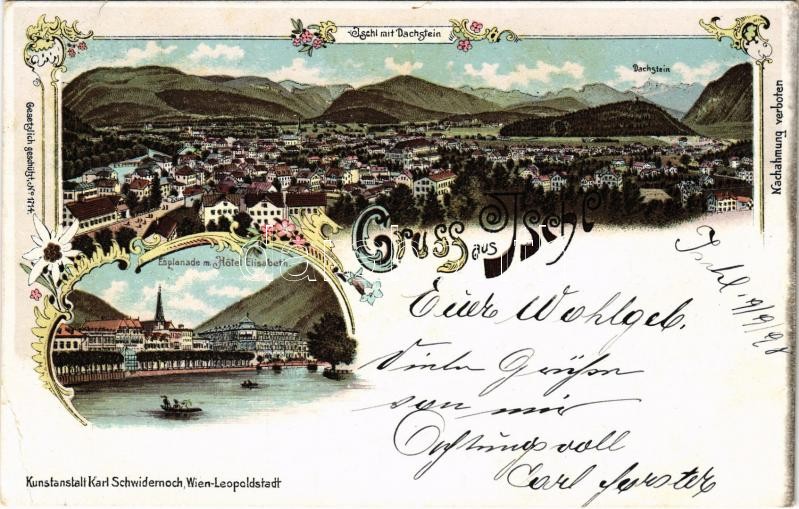 Ischl mit Dachstein
Dachstein
Gesetzlich geschützt, No 1714.
Nachahmung verboten
Gruss aus Ischl
Esplanade m. Hôtel Elisabeth.
Ischl 19/9/98
Euer Wohlgeb.
Viele Grüße
von mir
Achtungsvoll
Carl Forster
Kunstanstalt Karl Schwidernoch, Wien-Leopoldstadt